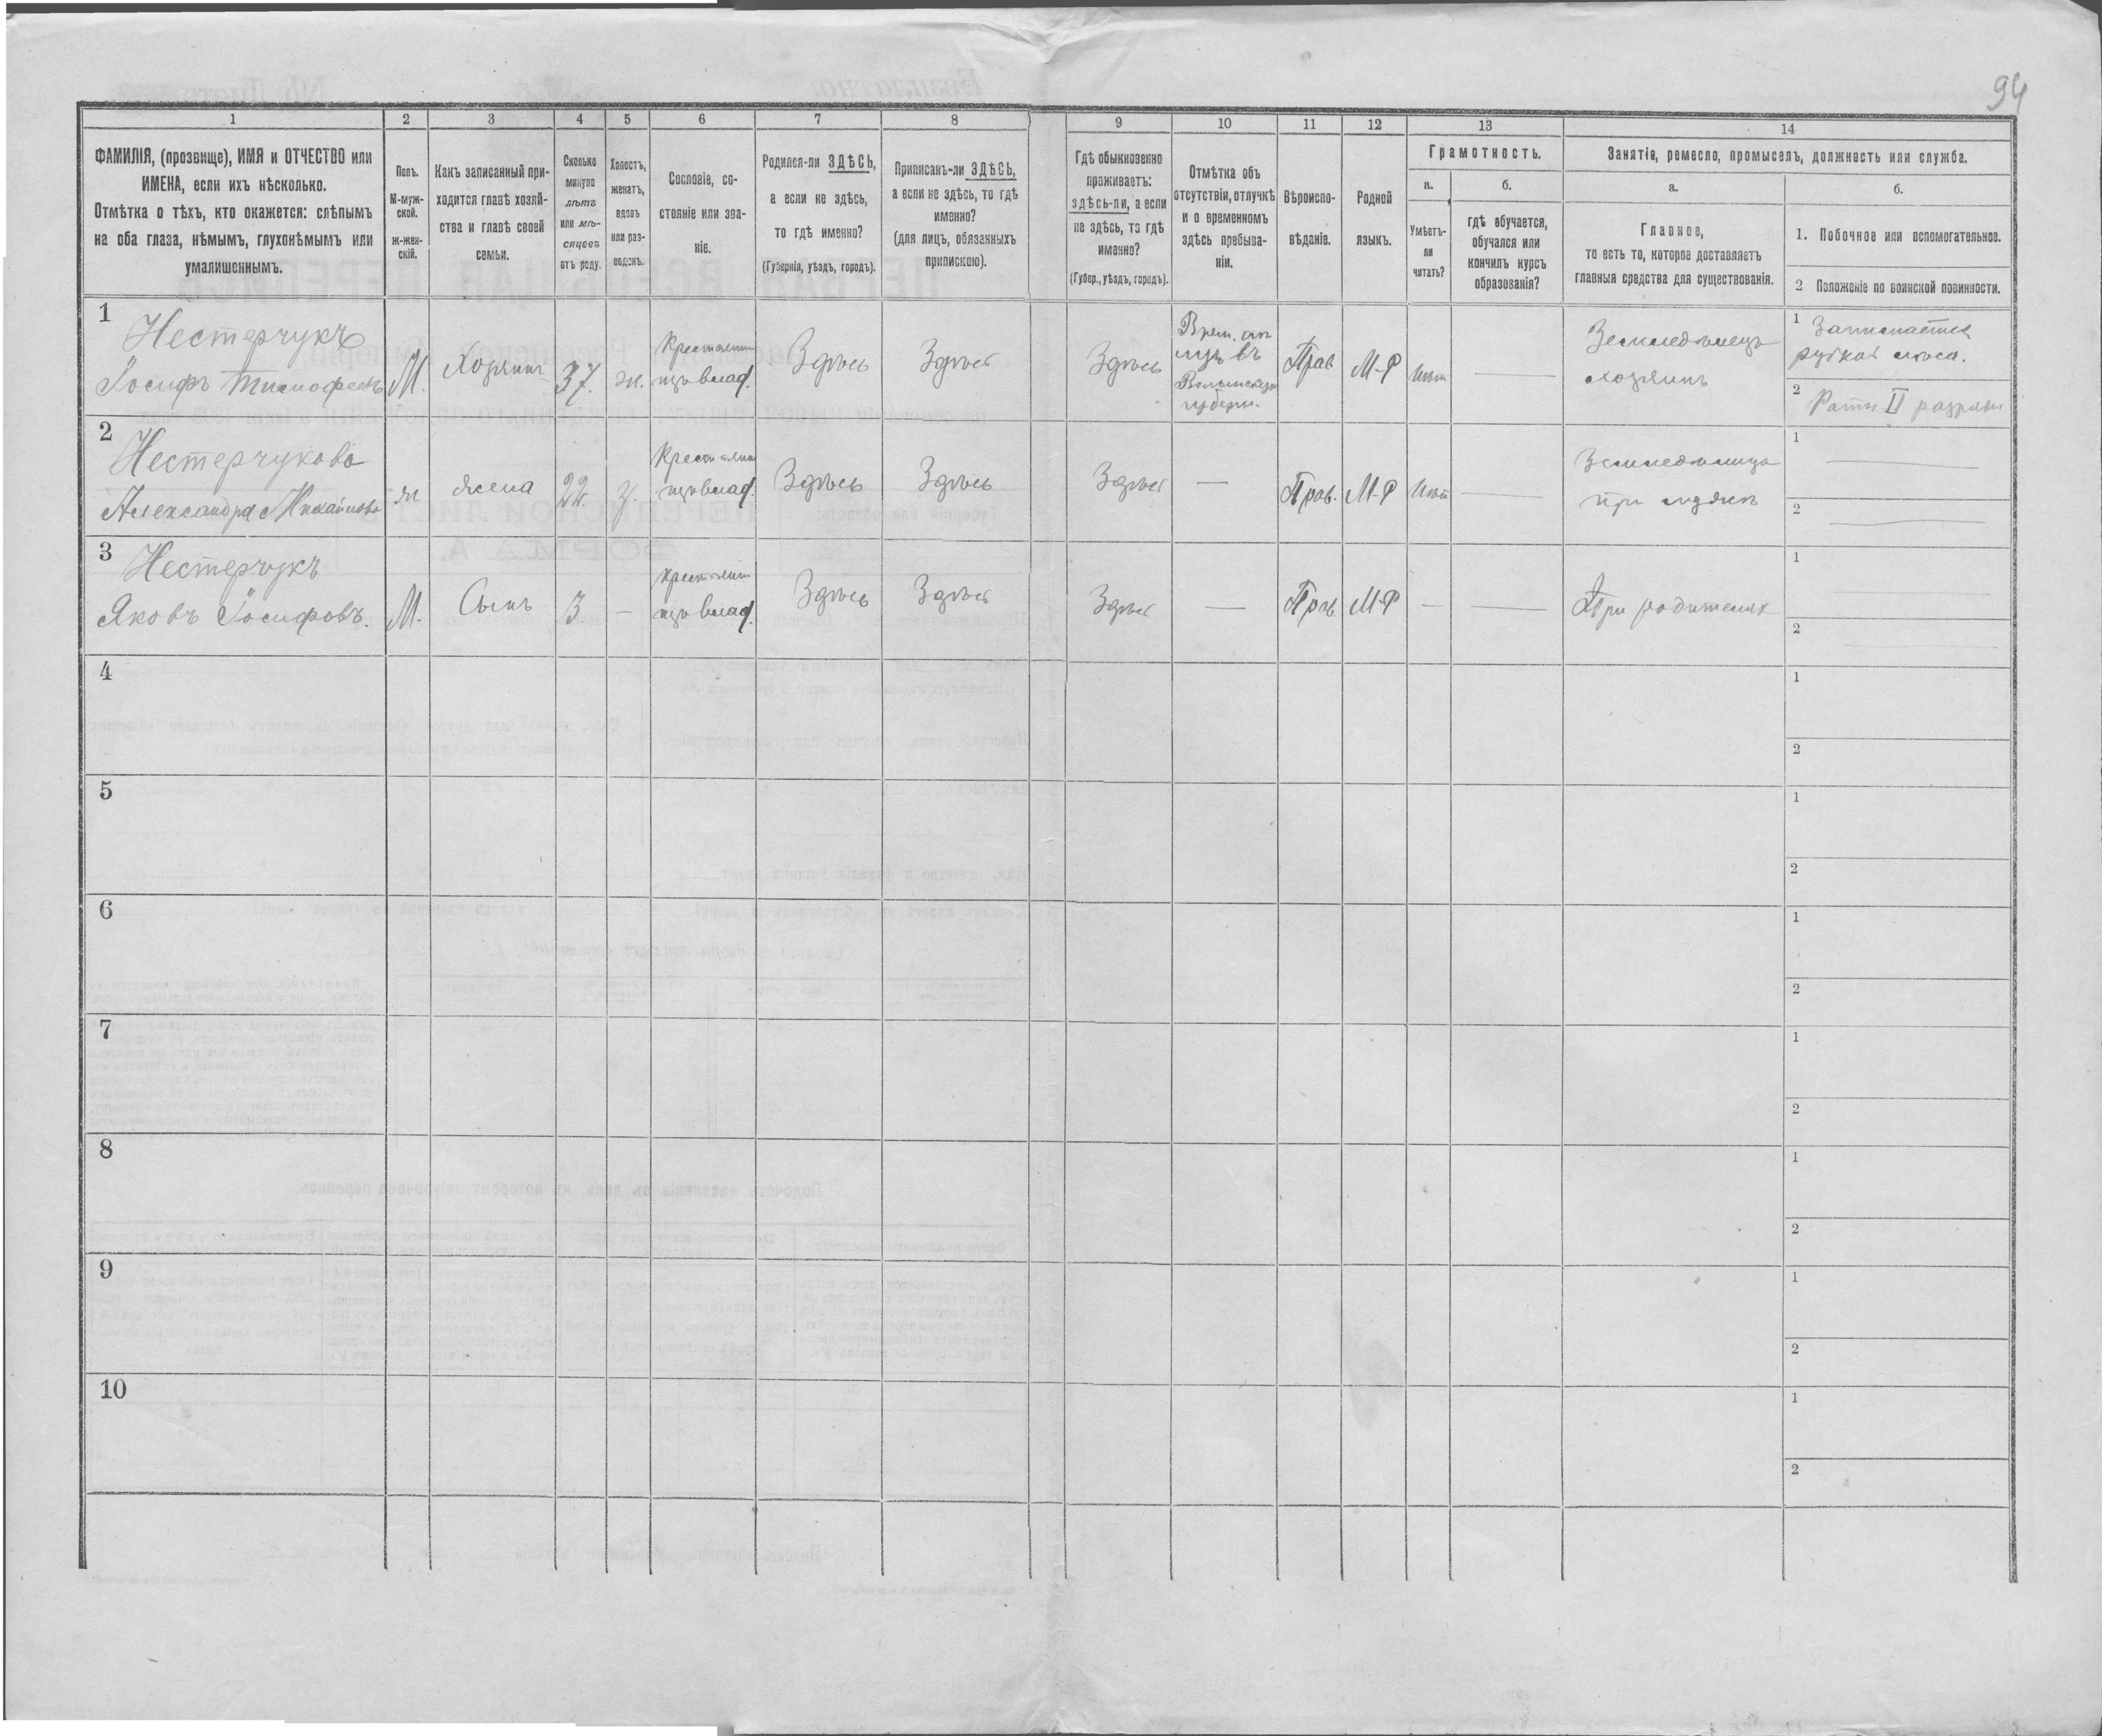 94
1 2 3 4 5 6 7 8 9 10 11 12 13 14
ФАМИЛІЯ, (прозвище), ИМЯ и ОТЧЕСТВО или
ИМЕНА, если ихъ нѣсколько.
Отмѣтка о тѣхъ, кто окажется: слѣпымъ
на оба глаза, нѣмымъ, глухонѣмымъ или
умалишеннымъ.
Полъ.
М-муж-
ской.
ж-жен-
скій.
Какъ записанный при-
ходится главѣ хозяй-
ства и главѣ своей
семьи.
Сколько
минуло
лѣтъ
или мѣ-
сяцевъ
отъ роду.
Холостъ,
женатъ,
вдовъ
или раз-
веденъ.
Сословіе, со-
стояніе или зва-
ніе.
Родился-ли ЗДѢСЬ,
а если не здѣсь,
то гдѣ именно?
(Губернія, уѣздъ, городъ).
Приписанъ-ли ЗДѢСЬ,
а если не здѣсь, то гдѣ
именно?
(для лицъ, обязанныхъ
припискою).
Гдѣ обыкновенно
проживаетъ:
здѣсь-ли, а если
не здѣсь, то гдѣ
именно?
(Губер., уѣздъ, городъ).
Отмѣтка объ
отсутствіи, отлучкѣ
и о временномъ
здѣсь пребыва-
ніи.
Вѣроиспо-
вѣданіе.
Родной
языкъ.
Грамотность.
а.
Умѣетъ-
ли
читать?
б.
гдѣ обучается,
обучался или
кончилъ курсъ
образованія?
Занятіе, ремесло, промыселъ, должность или служба.
а.
Главное,
то есть то, которое доставляетъ
главныя средства для существованія.
б.
1. Побочное или вспомогательное.
2 Положеніе по воинской повинности.
1
Нестерчукъ
Іосифъ Тимофеевъ
М.
Хозяинъ
37.
ж.
Крестьянин
изъ влад.
Здѣсь
Здѣсь
Здѣсь
Врем. от
луч въ
Волынскую
губерн.
Прав
М-Р
Нѣт
—
Земледѣлецъ
хозяинъ
1 Занимается
рубкой лѣса.
2 Ратн II разряда
2
Нестерчукова
Александра Михайлова
ж
жена
22.
з.
Крестьянин
изъ влад.
Здѣсь
Здѣсь
Здѣсь
—
Прав.
М-Р
Нѣт
—
Земледѣлица
при мужѣ
1 —
2 —
3
Нестерчукъ
Яковъ Іосифовъ.
М.
Сынъ
3.
—
Крестьянин
изъ влад.
Здѣсь
Здѣсь
Здѣсь
—
Прав.
М-Р
—
—
При родителях
1 —
2 —
4
1
2
5
1
2
6
1
2
7
1
2
8
1
2
9
1
2
10
1
2